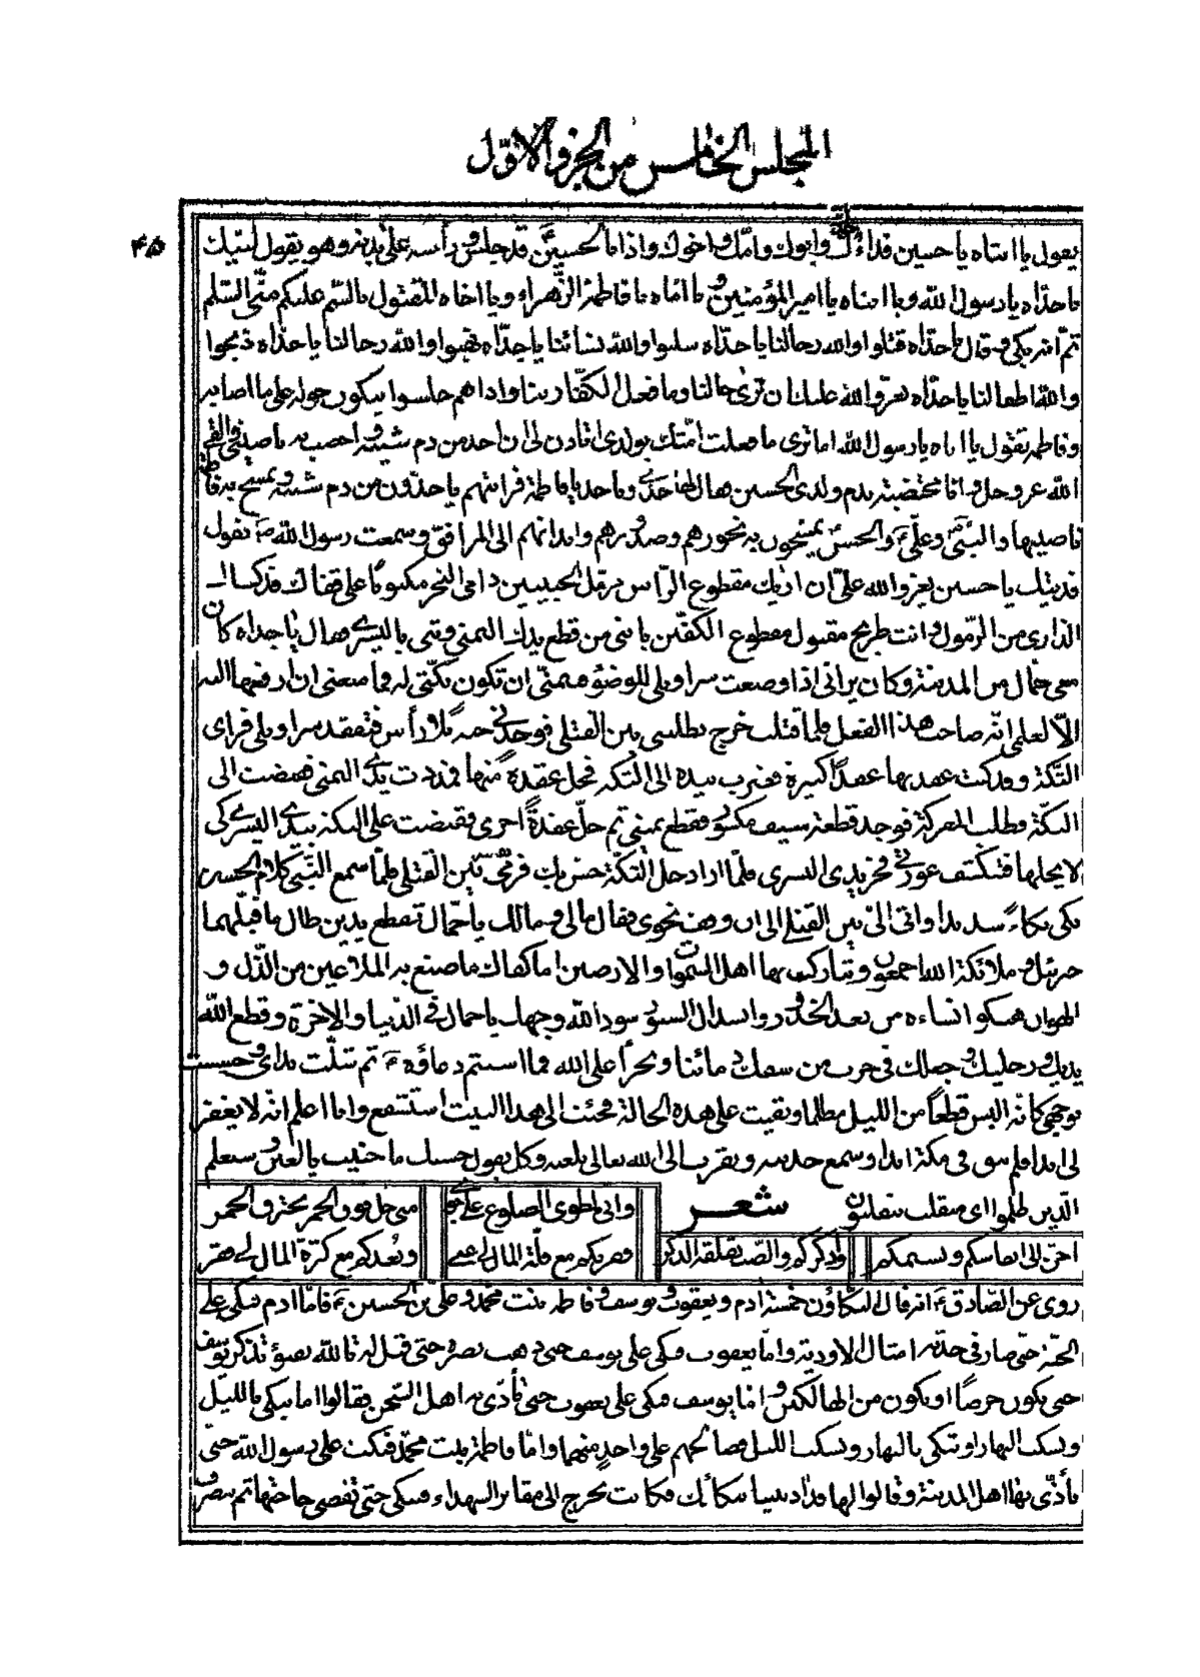 المجلس الخامس من الجزء الاول
۴۵
يقول يا ابتاه يا حسين فداءك جدك وابوك وامك واخوك واذا بالحسين قد جلس ورأسه على بدنه وهو يقول لبيك
يا جداه يا رسول الله ويا ابتاه يا امير المؤمنين ويا اماه يا فاطمة الزهراء ويا اخاه المقتول بالسم عليكم منى السلم
ثم انه بكى وقال يا جداه قتلوا والله رجالنا يا جداه سلبوا والله نسائنا يا جداه نهبوا والله رحالنا يا جداه ذبحوا
والله اطفالنا يا جداه يعز والله عليك ان ترى حالنا وما فعل الكفار بنا واذا هم جلسوا يبكون حوله على ما اصابه
وفاطمة تقول يا اباه يا رسول الله اما ترى ما فعلت امتك بولدى اتأذن لى ان اخذ من دم شيبه واخضب به ناصيتى والقى
الله عز وجل وانا مختضبة بدم ولدى الحسين فقال لها خذى وناخذ يا فاطمة فرايتهم ياخذون من دم شيبه وتمسح به فاطمة
ناصيتها والنبى وعلى والحسن يمسحون به نحورهم وصدورهم وايديهم الى المرافق وسمعت رسول الله ص يقول
فديتك يا حسين يعز والله على ان اراك مقطوع الراس مرمل الجبينين دامى النحر مكبوبا على قفاك قد كساك
الذارى من الرمول وانت طريح مقتول مقطوع الكفين يا بنى من قطع يدك اليمنى وثنى باليسرى فقال يا جداه كان
معى جمال من المدينة وكان يرانى اذا وضعت سراويلى للوضوء فيتمنى ان تكون تكتى له فما منعنى ان ادفعها اليه
الا لعلمى انه صاحب هذا الفعل فلما قتلت خرج يطلبنى بين القتلى فوجدنى جثة بلا رأس فتفقد سراويلى فراى
التكة وقد كنت عقدتها عقدا كثيرة فضرب بيده الى التكة فحل عقدة منها فمددت يدى اليمنى فقبضت الى
التكة فطلب المعركة فوجد قطعة سيف مكسور فقطع يمينى ثم حل عقدة اخرى فقبضت على التكة بيدى اليسرى كى
لا يحلها فتنكشف عورتى فحز يدى اليسرى فلما اراد حل التكة حس بك فرمى نفسه بين القتلى فلما سمع النبى كلام الحسين
بكى بكاء شديدا واتى الى بين القتلى الى ان وقف نحوى فقال ما لى وما لك يا جمال تقطع يدين طال ما قبلهما
جبرئيل وملائكة الله اجمعون وتباركت بها اهل السموات والارضين اما كفاك ما صنع به الملاعين من الذل و
الهوان هتكوا نساءه من بعد الخدور وانسدال الستور سود الله وجهك يا جمال فى الدنيا والاخرة وقطع الله
يديك ورجليك وجعلك فى حزب من سفك دمائنا وتجرأ على الله فما استتم دعاؤه ثم شلت يداى وحسست
بوجهى كانه البس قطعا من الليل مظلما وبقيت على هذه الحالة فجئت الى هذا البيت استشفع وانا اعلم انه لا يغفر
لى ابدا فلم يبق فى مكة احد الا وسمع حديثه وتقرب الى الله تعالى بلعنه وكل يقول حسبك ما جنيت يا لعين وسيعلم
الذين ظلموا اى منقلب ينقلبون
شعـــر
وانى لمطوى الضلوع على جوى
متى حل دون الجمر يحترق الجمر
احن الى انفاسكم ونسيمكم
وذكركم والصب يقلقه الذكر
وقربكم مع قلة المال لى غنى
وبعدكم مع كثرة المال لى فقر
روى عن الصادق ع انه قال البكاؤن خمسة ادم ويعقوب ويوسف وفاطمه بنت محمد وعلى بن الحسين ع فاما ادم فبكى على
الجنة حتى صار فى خديه امثال الاودية واما يعقوب فبكى على يوسف حتى ذهب بصره حتى قيل له تالله تفتؤ تذكر يوسف
حتى تكون حرضا او تكون من الهالكين واما يوسف فبكى على يعقوب حتى تأذى به اهل السجن فقالوا اما تبكى بالليل
وتسكت النهار او تبكى بالنهار وتسكت الليل فصالحهم على واحد منهما واما فاطمة بنت محمد فبكت على رسول الله حتى
تأذى بها اهل المدينة وقالوا لها قد اذيتينا ببكائك فكانت تخرج الى مقابر الشهداء فتبكى حتى تقضى حاجتها ثم تنصرف